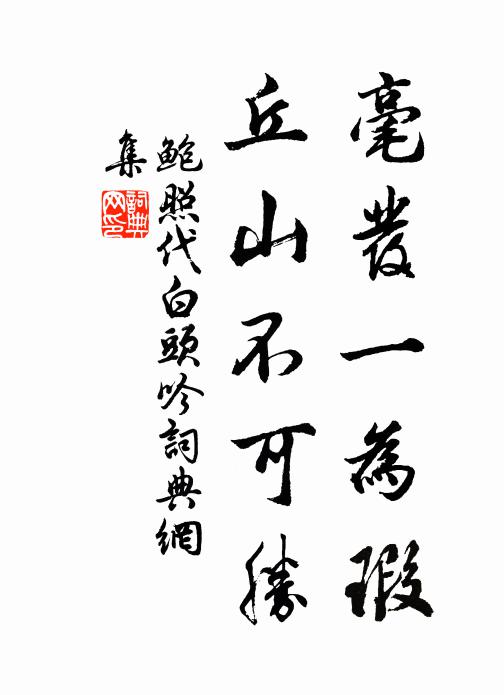 毫發一為瑕
丘山不可勝
鮑照代白頭吟詞典網
集
詞典
网印